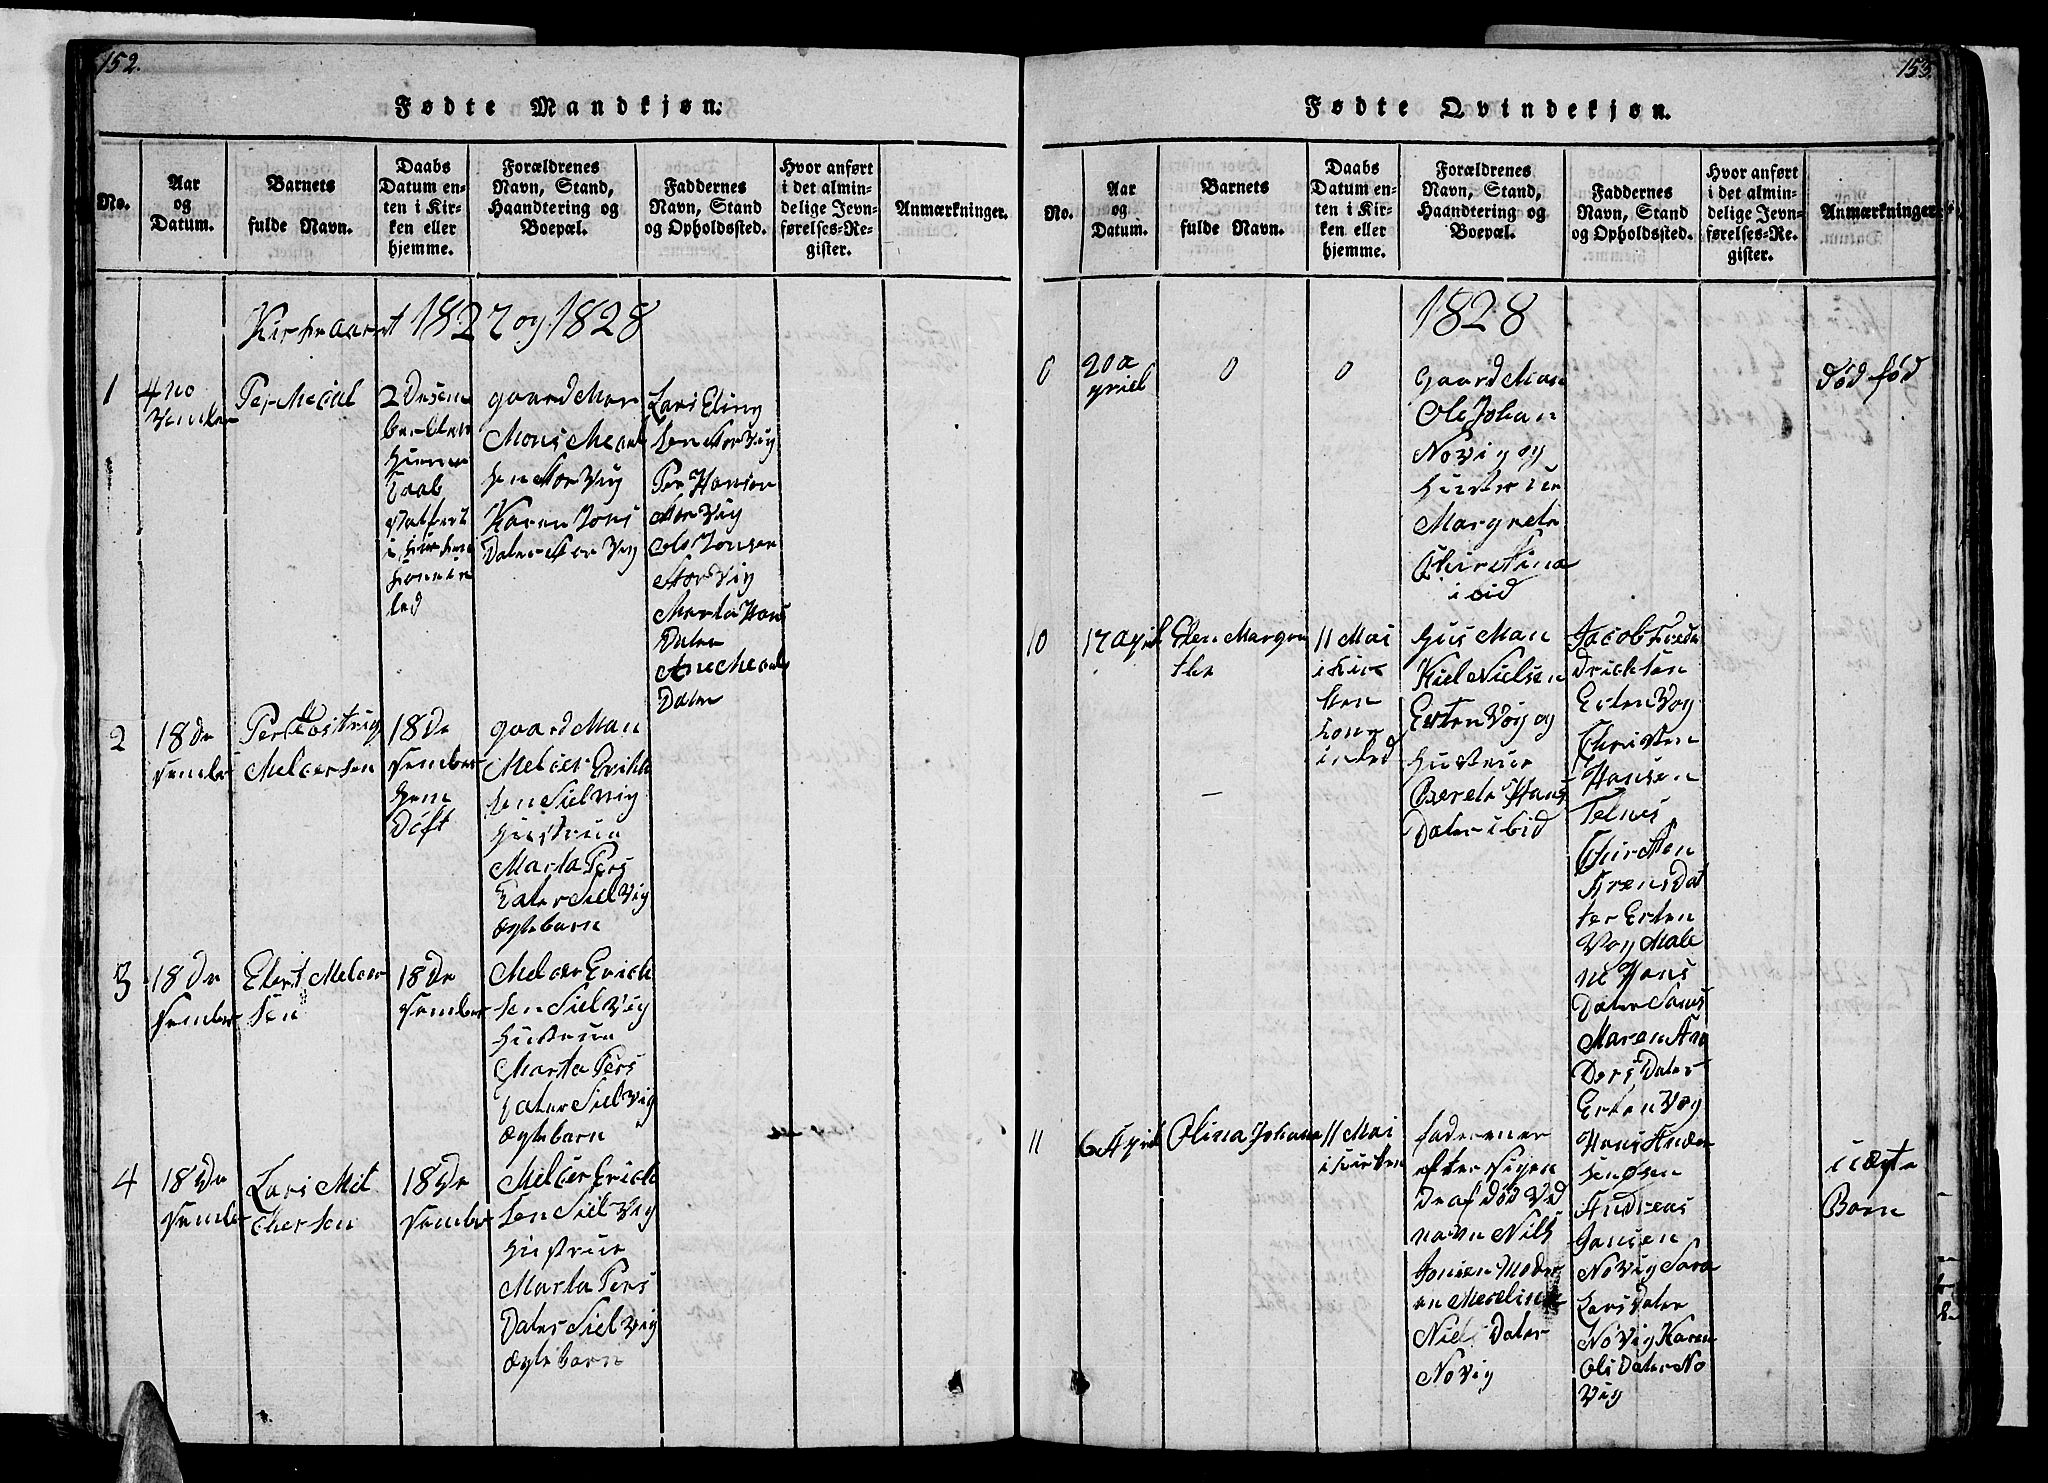 152.
Fødte Mandkjøn.
No.
Aar
og
Datum.
Barnets
fulde Navn.
Daabs
Datum en-
ten i Kir-
ken eller
hjemme.
Forældrenes
Navn, Stand,
Haandtering og
Boepæl.
Faddernes
Navn, Stand
og Opholdssted.
Hvor anført
i det almin-
delige Jevn-
førelses-Re-
gister.
Anmærkninger.
Kirkeaaret 1827 og 1828
1
4 no
vember
Per Meial
2 Desem
ber
Hieme
Daab
i kirken
gaard Man
Mons Meael
sen Stor Vig
Karen Jons
Dater Stor Vig
Lars Eling
sen Stor Vig
Per Hansen
Stor Vig
Ole Jonsen
Stor Vig
Marta Hans
Dater
Ane Meaels
Dater
2
18 De
sember
Per
Melcersen
18 De
sember
Hem
Døft
gaard Man
Melcer Erich
sen Sielvig
Hustrue
Marta Pers
Dater Siel Vig
ægte barn
3
18 De
sember
Elert Melcer
sen
18 De
sember
Melcer Erich
sen Siel Vig
Hustrue
Marta Pers
Dater Siel Vig
ægte barn
4
18 De
sember
Lars Mel
chersen
18 De
sember
Melcer Erich
sen Siel Vig
Hustrue
Marta Pers
Dater Siel Vig
ægte barn
153.
Fødte Qvindekjøn.
No.
Aar
og
Datum.
Barnets
fulde Navn.
Daabs
Datum en-
ten i Kir-
ken eller
hjemme.
Forældrenes
Navn, Stand,
Haandtering og
Boepæl.
Faddernes
Navn, Stand
og Opholdssted.
Hvor anført
i det almin-
delige Jevn-
førelses-Re-
gister.
Anmærkninger
1828
0
20 a
priel
0
0
gaard Man
Ole Johan
Novig og
Hustrue
Margrete
Christina
ibid
død fød
10
17 April
Elen Margre
the
11 Mai
i Kir
ken
Hus Man
Kiel Nielsen
Erten Vog og
Hustrue
Berete Hans
Dater ibid
Jacob Frede
drichsen
Erten Vog
Christen
Hansen
Telnes
Kirsten
Jrens Dat
ter Erten
Vog Male
ne Hans
Dater Sans
Maren An
Ders Dater
Erten Vog
11
6 April
Olina Johana
11 Mai
i Kirken
faderen er
efter sigen
de af død Ved
navn Nils
Jonsen Moder
en Merelina
Niels Dater
Novig
Hans Ander
sen øsen
Andreas
Jansen
Novig Sara
Lars Dater
Novig Karen
Ols Dater No
Vig
uægte
Barn